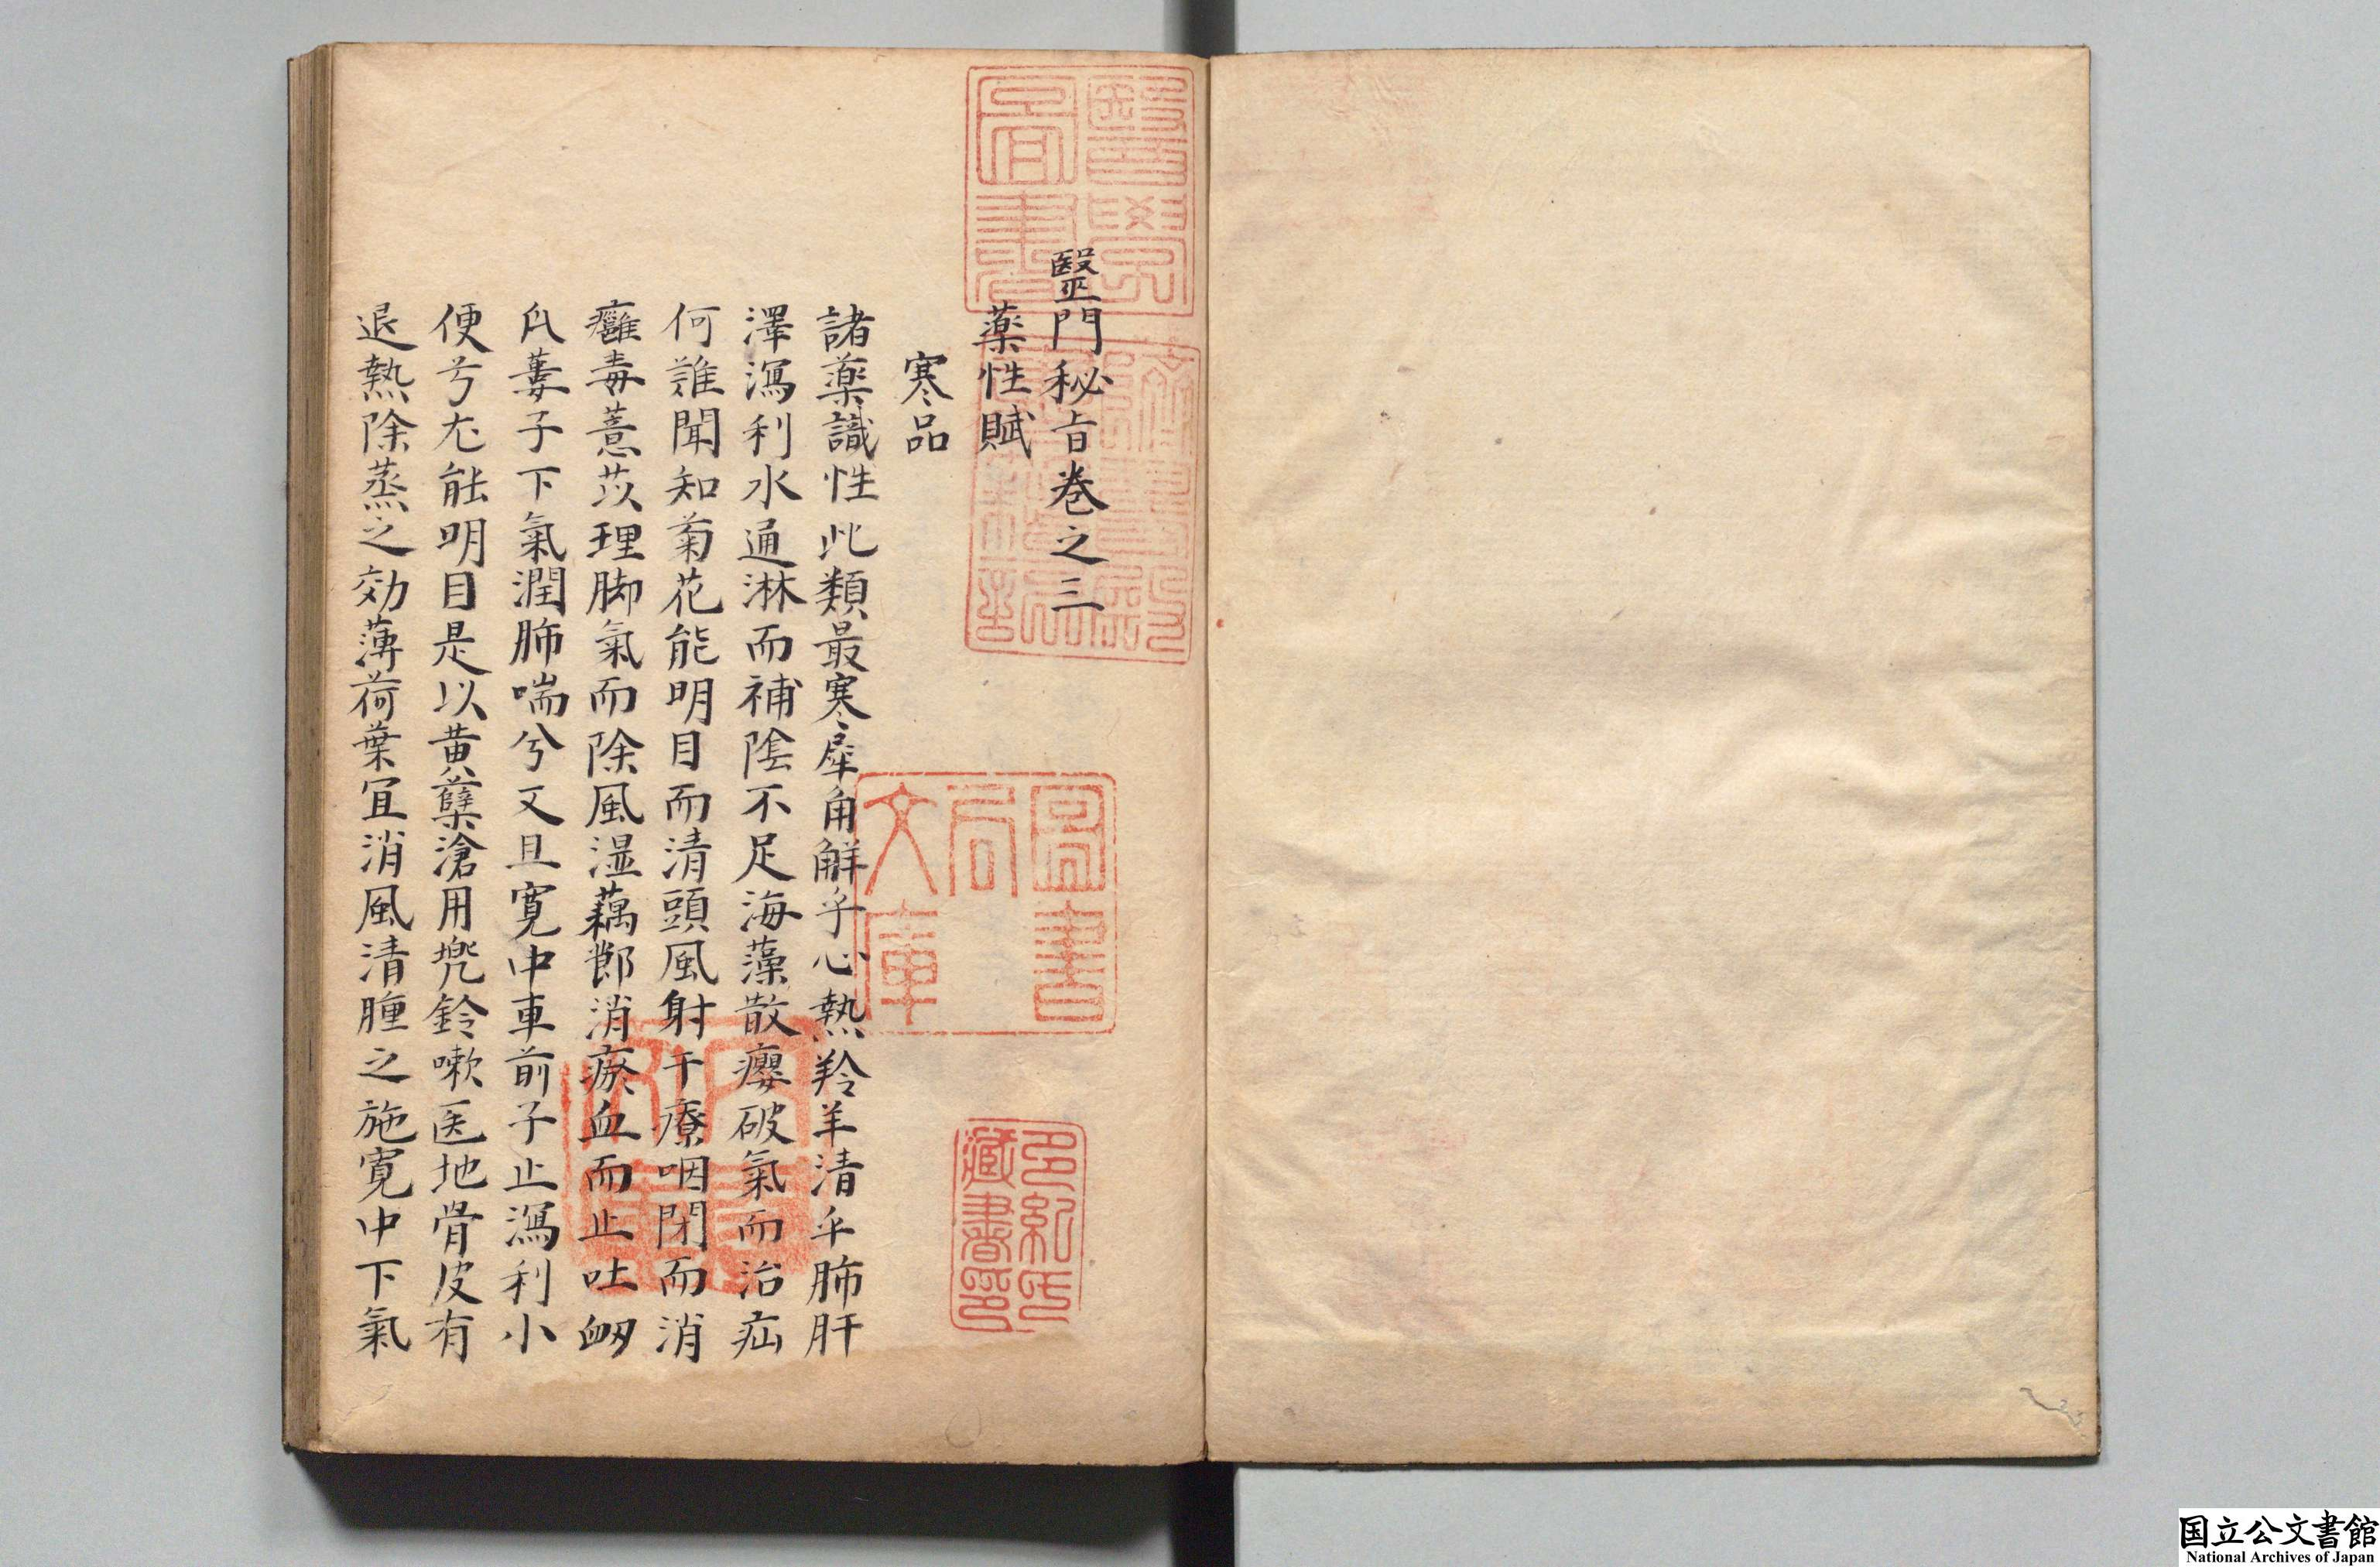 毉門秘旨卷之三
藥性賦
寒品
諸藥識性此類最寒犀角解乎心熱羚羊清乎肺肝
澤瀉利水通淋而補陰不足海藻散癭破氣而治疝
何難聞知菊花能明目而清頭風射干療咽閉而消
癰毒薏苡理脚氣而除風湿藕節消瘀血而止吐衂
瓜蔞子下氣潤肺喘兮又且寛中車前子止瀉利小
便兮尤能明目是以黄蘗瘡用兠鈴嗽医地骨皮有
退熱除蒸之効薄荷葉宜消風清腫之施寛中下氣
醫學圖書
躋壽殿書籍記
圖書局文庫
多紀氏藏書印
国立公文書館
National Archives of Japan